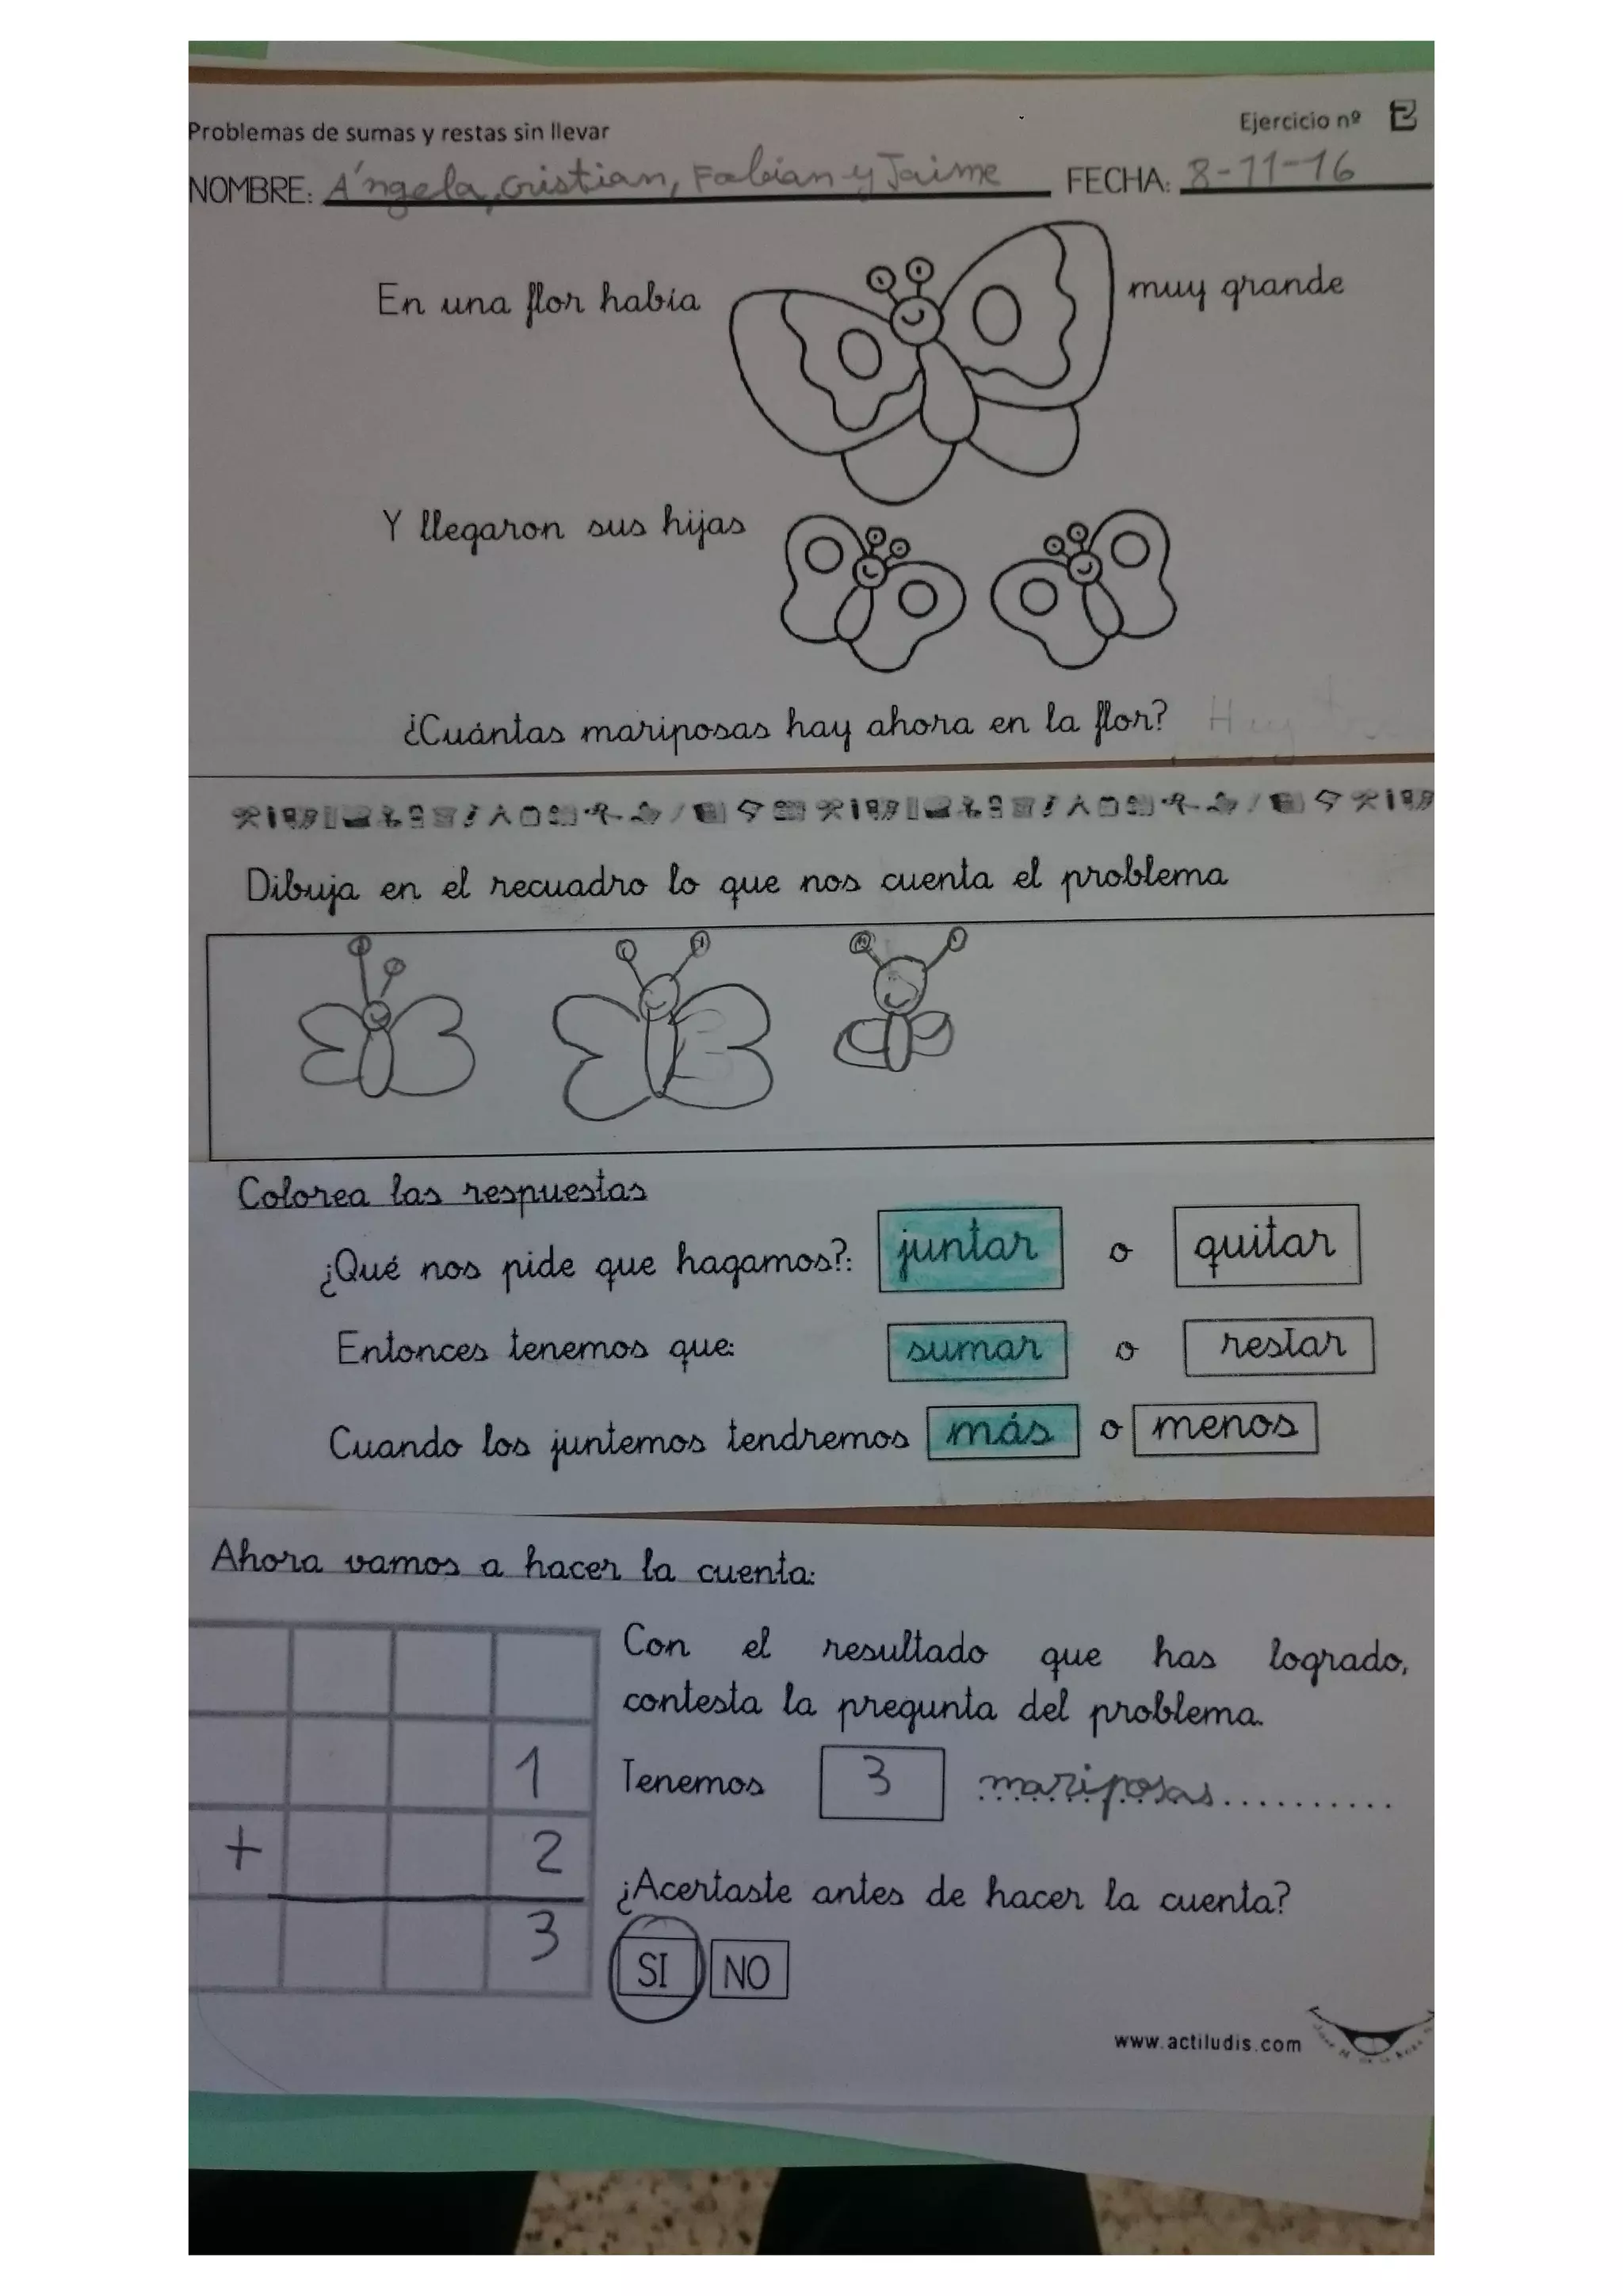 Problemas de sumas y restas sin llevar
Ejercicio nº 2
NOMBRE: Ángela, Cristian, Fabian y Jaime FECHA: 8-11-16
En una flor había muy grande
Y llegaron sus hijas
¿Cuántas mariposas hay ahora en la flor? Hay
Dibuja en el recuadro lo que nos cuenta el problema
Colorea las respuestas
¿Qué nos pide que hagamos?: juntar o quitar
Entonces tenemos que: sumar o restar
Cuando los juntemos tendremos más o menos
Ahora vamos a hacer la cuenta:
1
+ 2
3
Con el resultado que has logrado,
contesta la pregunta del problema.
Tenemos 3 mariposas..........
¿Acertaste antes de hacer la cuenta?
SI NO
www.actiludis.com